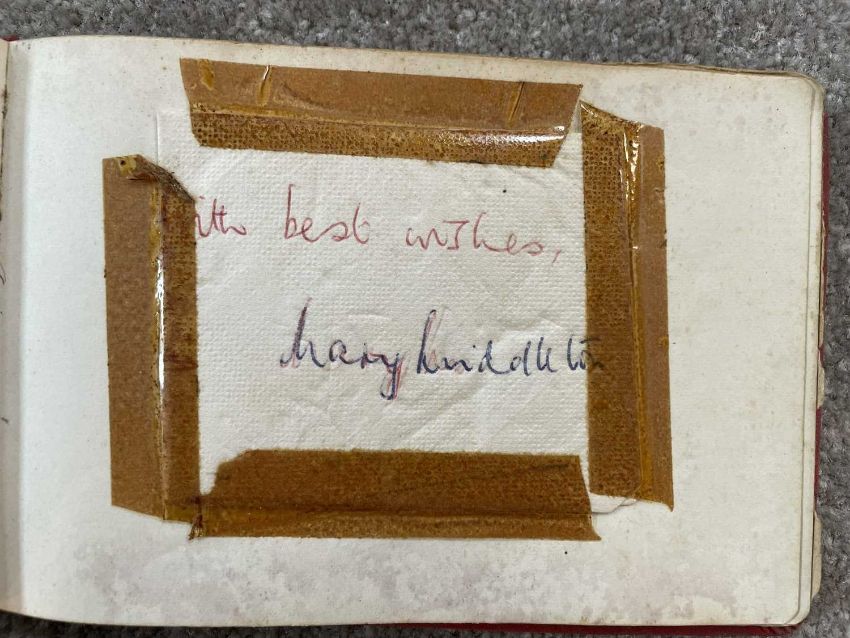 ith best wishes,
Mary Middleton